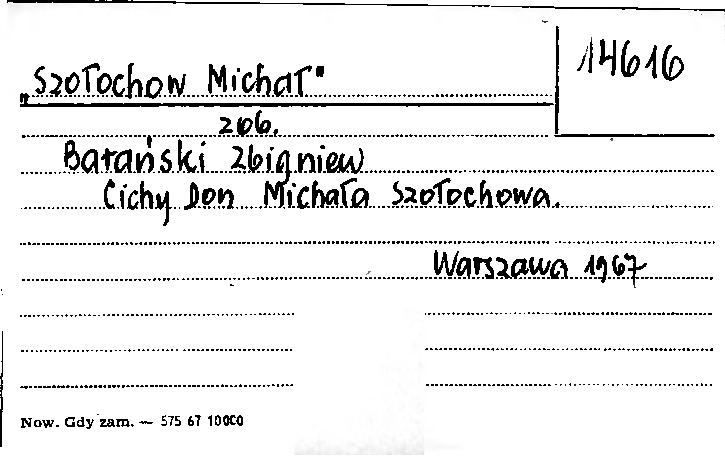 „Szołochow Michał"
14616
206.
Barański Zbigniew
Cichy Don Michała Szołochowa.
Warszawa 1967
Now. Gdy zam. — 575 67 10000